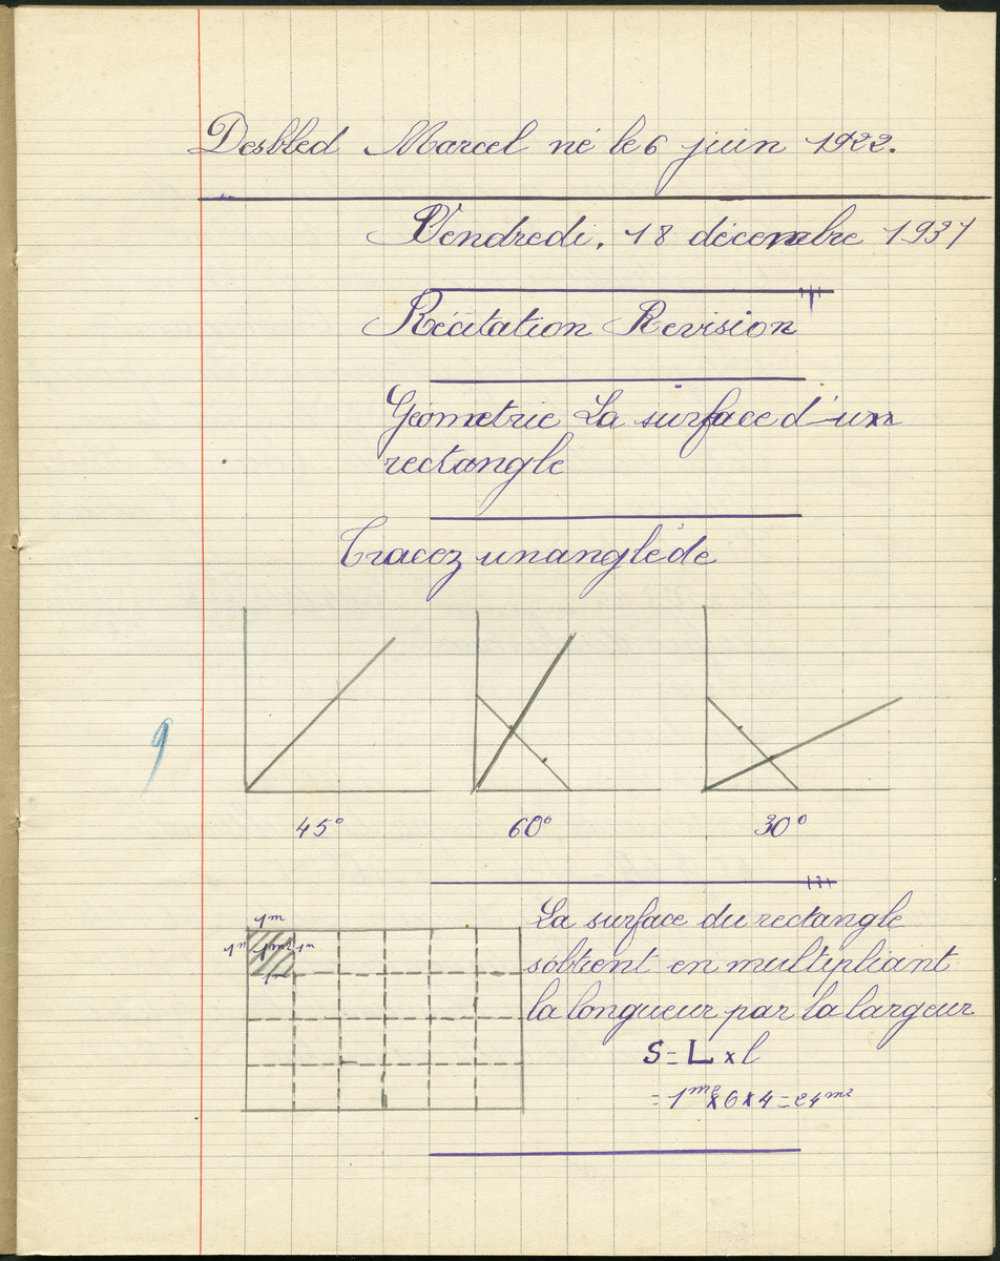 Desbled Marcel né le 6 juin 1922.
Vendredi, 18 décembre 1931
Récitation Revision
Géometrie La surface d'un
rectangle
Tracez un angle de
9
45° 60° 30°
1m
1m 1m² 1m
1m
La surface du rectangle
s'obtient en multipliant
la longueur par la largeur
S = L x l
= 1m² x 6 x 4 = 24m²